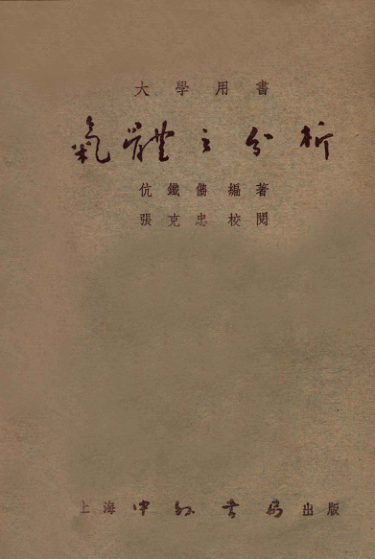 大學用書
氣體之分析
伉鐵儁編著
張克忠校閱
上海中外書局出版